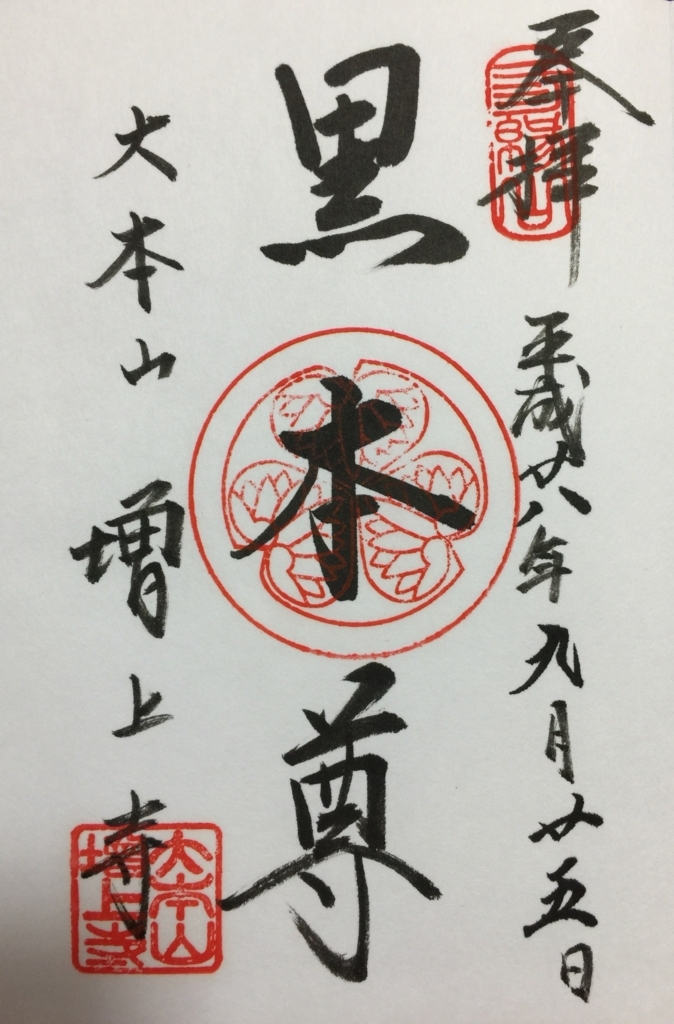 奉拝
平成廿八年九月廿五日
黒本尊
大本山増上寺
大本山
増上寺